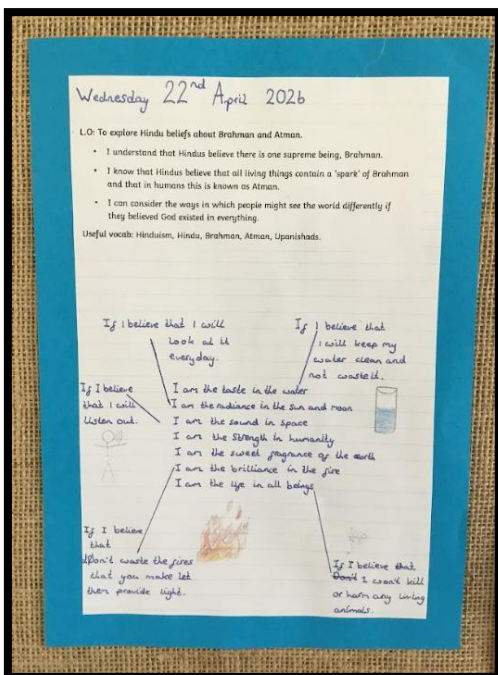 Wednesday 22nd April 2026
L.O: To explore Hindu beliefs about Brahman and Atman.
• I understand that Hindus believe there is one supreme being, Brahman.
• I know that Hindus believe that all living things contain a 'spark' of Brahman
and that in humans this is known as Atman.
• I can consider the ways in which people might see the world differently if
they believed God existed in everything.
Useful vocab: Hinduism, Hindu, Brahman, Atman, Upanishads.
If I believe that I will
Look at it
everyday.
If I believe that
I will keep my
water clean and
not waste it.
If I believe
that I will
Listen out.
I am the taste in the water
I am the radiance in the sun and moon
I am the sound in space
I am the strength in humanity
I am the sweet fragrance of the earth
I am the brilliance in the fire
I am the life in all beings
If I believe
that
Don't waste the fires
that you make let
them provide light.
If I believe that
Don't I won't kill
or harm any living
animals.